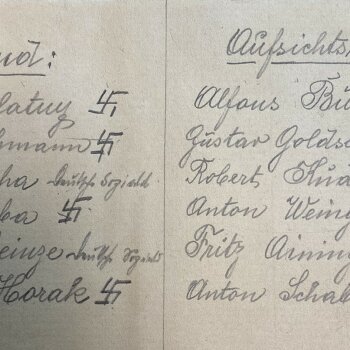 nd:
latny 卐
hmann 卐
ha Deutsche Soziald
ba 卐
einze Deutsche Soziald
Horak 卐
Aufsichts
Alfons Bü
Gustav Golds
Robert Kud
Anton Weing
Fritz Aining
Anton Schab